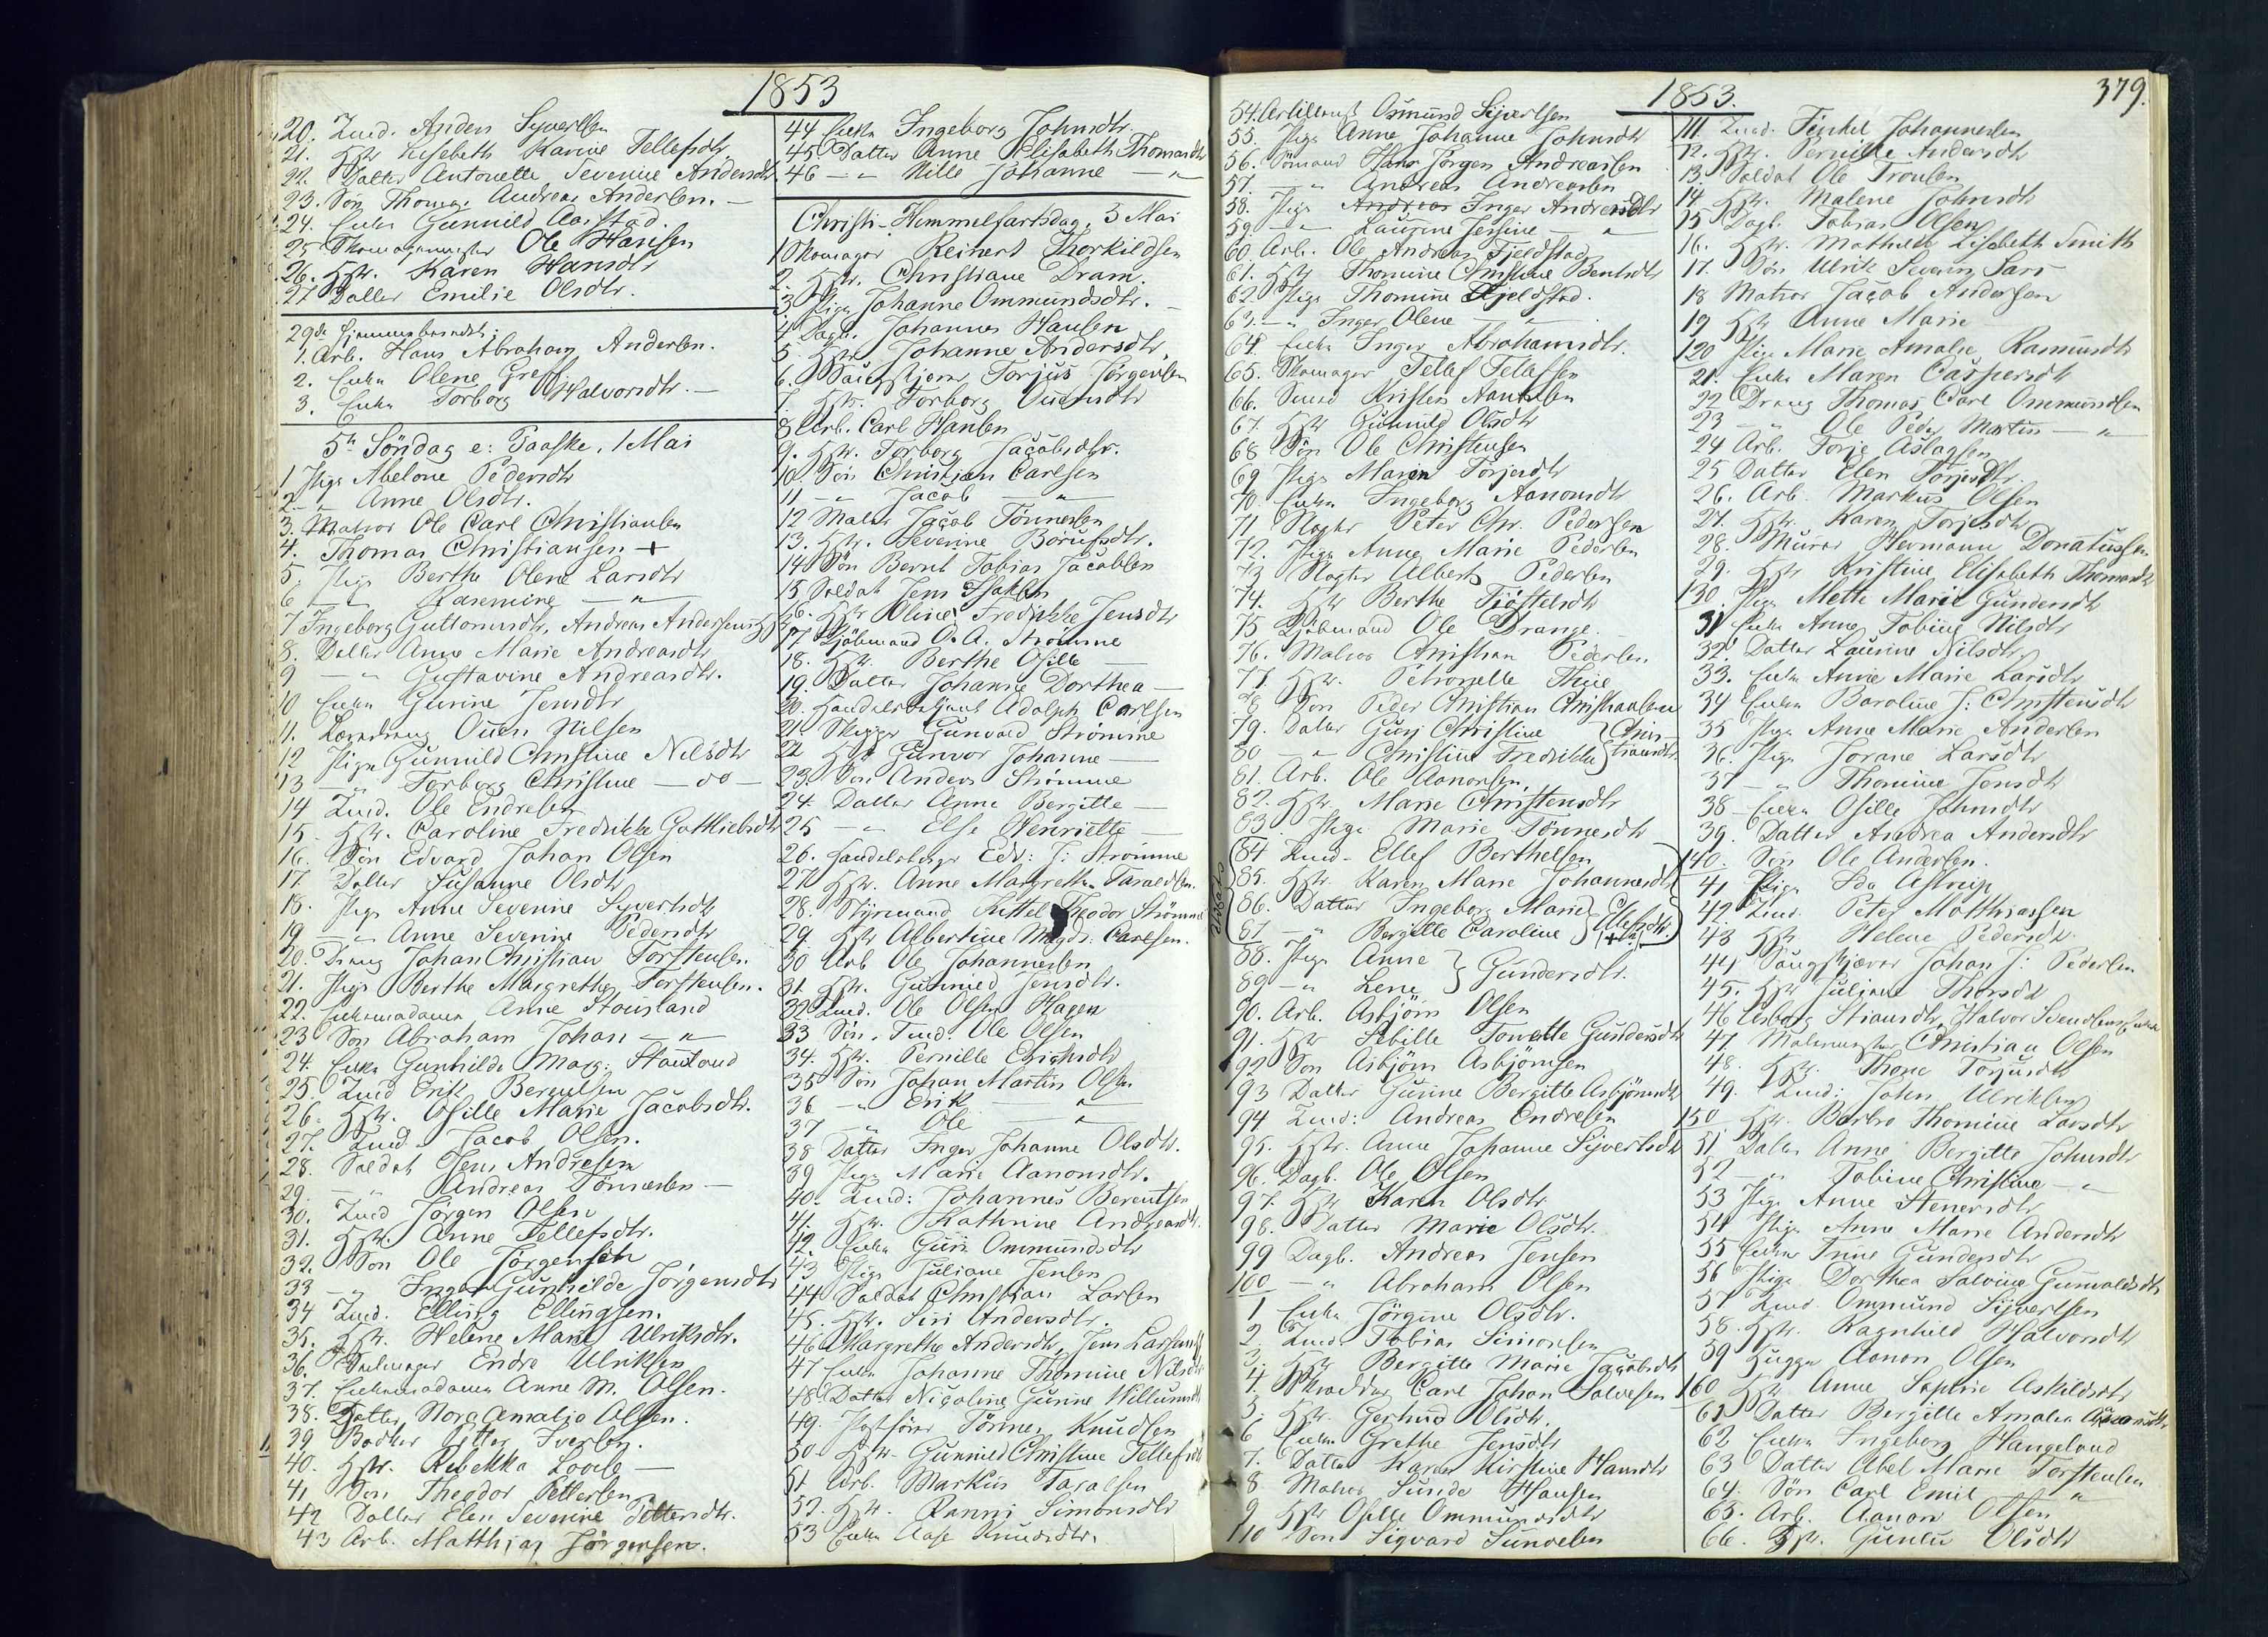 1853
20. Tmd. Anders Syvertsen
21. Hstr Lisebeth Karine Tellefsdtr
22. Datter Antonette Severine Andersdtr.
23. Søn Thomas Andreas Andersen. —
24. Enke Gunnild Aarstad.
25 Skomagermester Ole Hansen
26. Hstr. Karen Hansdtr
27 Datter Emilie Olsdtr.
29de hjemmeberedt;
1. Arb. Hans Abraham Andersen.
2. Enke Olene Greff
3. Enke Torborg Halvorsdtr. —
5te Söndag e: Paaske, 1 Mai
1 Pige Abelone Pedersdtr
2 — " Anne Olsdtr.
3. Matros Ole Carl Christiansen
4. Thomas Christiansen +
5. Pige Berthe Olene Larsdtr
6 — " Rasemine — "
7 Ingeborg Guttormsdtr, Andreas Andersens
8. Datter Anne Marie Andreasdtr
9 — " Gustavine Andreasdtr.
10 Enke Gunine Jensdtr
11. Læredreng Ouen Nilsen
12 Pige Gunnild Christine Nilsdtr
13 — " Torborg Christine — do —
14 Tmd. Ole Endresen
15 Hstr. Caroline Fredrikke Gottliebsdtr
16. Søn Edvard Johan Olsen
17. Datter Susanne Olsdtr
18. Pige Anne Severine Syvertsdtr
19 — " Anne Severine Pedersdtr
20. Dreng Johan Christian Torstensen.
21. Pige Berthe Margrethe Torstensen.
22. Enkemadamen Anne Stousland
23 Søn Abraham Johan — "
24. Enke Gunhilde Marg. Stausland
25. Tmd Erik Berentsen
26. Hstr. Osille Marie Jacobsdtr.
27. Tmd. Jacob Olsen.
28. Soldat Jens Andresen
29. — " Andreas Tönnesen —
30. Tmd Jörgen Olsen
31. Hstr. Anne Tellefsdtr.
32. Søn Ole Jörgensen
33 — " Inger Gunhilde Jörgensdtr
34 Tmd. Elling Ellingsen.
35. Hstr. Helene Marie Ulriksdtr.
36. Seilmager Endre Ulriksen
37. Enkemadamen Anne M. Olsen.
38. Datter Nora Amalia Olsen.
39 Bødker Petter Iversen.
40. Hstr. Rebekka Loole —
41 Søn Theodor Pettersen
42 Datter Elen Severine Pettersdtr.
43 Arb. Matthias Jörgensen.
44 Enke Ingeborg Johnsdtr.
45 Datter Anne Elisabeth Thomasdtr
46 — " Nille Johanne — "
Christi-Himmelfartsdag, 5 Mai
1 Skomager Reinert Thorkildsen
2. Hstr. Christiane Dram.
3 Pige Johanne Ommundsdtr. —
4 Dagb. Johannes Hansen
5. Hstr Johanne Andersdtr.
6. Saugskjærer Torjus Jörgensen
7. Hstr. Torborg Ouensdtr
8 Arb. Carl Hansen
9. Hstr. Torborg Jacobsdtr.
10. Søn Christian Carlsen
11 — " Jacob — "
12 Maler Jacob Tönnesen
13. Hstr. Severine Børufsdtr.
14 Søn Bernt Tobias Jacobsen
15 Soldat Jens Isaksen
16. Hstr Oline Fredrikke Jensdtr
17 Kjöbmand O. A. Strömme
18. Hstr. Berthe Osille —
19. Datter Johanne Dorthea —
20. Handelsbetjent Adolph Carlsen
21. Skipper Gunvald Strömme
22 Hstr Gunvor Johanne —
23. Søn Anders Strömme
24. Datter Anne Bergitte —
25 — " Else Henriette —
26. Handelsborger Edv: J: Strömme
27 Hstr. Anne Margrethe Taraldsen.
28. Styrmand Kittel Theodor Strömme
29. Hstr Albertine Magd: Carlsen.
30 Arb Ole Johannesen
31. Hstr. Gunnild Jensdtr.
32 Tmd. Ole Olsen Hagen
33 Søn. Tmd. Ole Olsen
34. Hstr. Pernille Erichsdtr
35 Søn Johan Martin Olsen
36 — " Erik — "
37 — " Ole — "
38 Datter Inger Johanne Olsdtr.
39 Pige Marie Aanonsdtr.
40. Tmd: Johannes Berentsen
41. Hstr. Kathrine Andreasdtr.
42. Enke Guri Ommundsdtr
43 Pige Juliane Jensen
44 Soldat Christian Larsen
45. Hstr. Siri Andersdtr.
46 Margrethe Andersdtr, Jens Larsens
47 Enke Johanne Thomine Nilsdtr
48 Datter Nicoline Gunine Willumsdtr
49. Postfører Tönnes Knudsen
50 Hstr. Gunnild Christine Tellefsdtr
51 Arb. Markus Taraldsen
52. Hstr. Ranni Simonsdtr
53 Enke Aase Knudsdtr.
1853. 379.
54. Artillerist Osmund Sijvertsen
55. Pige Anne Johanne Johnsdtr
56. Sömand Hans Jörgen Andreassen
57. — " Andreas Andreassen
58. Pige Andreas Inger Andreasdtr
59 — " Laurine Jensine — "
60. Arb. Ole Andreas Fjeldstad
61. Hstr Thomine Christine Bentsdtr
62. Pige Thomine Fjeldstad.
63. — " Inger Olene — "
64. Enke Inger Abrahamsdtr.
65. Skomager Tellef Tellefsen
66. Smed Kristen Aanonsen
67. Hstr Gunnild Olsdtr
68 Søn Ole Christensen
69 Pige Maren Torjesdtr
70. Enke Ingeborg Aanonsdtr
71 Slagter Peter Chr. Pedersen
72. Pige Anne Marie Pedersen
73 Slagter Albert Pedersen
74. Hstr Berthe Tjöstelsdtr
75 Kjöbmand Ole Drange.
76. Matros Christian Pedersen
77 Hstr. Petronelle Thue
78 Søn Peder Christian Christiansen
79. Datter Guri Christine } Chris-
80 — " Christine Fredrikke } tiansdtr.
81. Arb. Ole Aanonsen
82. Hstr. Marie Christensdtr
83. Pige Marie Tönnesdtr
84 Tmd. Ellef Berthelsen
85. Hstr. Karen Marie Johannesdtr
86. Datter Ingeborg Marie } Ellefsdtr.
87 — " Bergitte Caroline }
88. Pige Anne } Gundersdtr.
89 — " Lene }
90. Arb. Asbjörn Olsen
91. Hstr Sebille Tonette Gundersdtr
92 Søn Asbjörn Asbjörnsen
93 Datter Gunine Bergitte Asbjörnsdtr
94 Tmd: Andreas Endresen
95. Hstr. Anne Johanne Sijvertsdtr
96. Dagb. Ole Olsen
97. Hstr Karen Olsdtr
98. Datter Marie Olsdtr.
99 Dagb. Andreas Jensen
100 — " Abraham Olsen
1 Enke Jörgine Olsdtr.
2 Tmd. Tobias Simonsen
3. Hstr Bergitte Marie Jacobsdtr
4. Skrædder Carl Johan Salvesen
5. Hstr. Gertrud Olsdtr.
6 Enke Grethe Jensdtr
7. Datter Karen Kirstine Hansdtr
8. Matros Sunde Hansen
9 Hstr Osille Ommundsdtr
110 Søn Sigvard Sundesen
111. Tmd. Tinkel Johannesen
12. Hstr. Pernille Andersdtr
13 Soldat Ole Tronsen
14. Hstr. Malene Johnsdtr
15 Dagb. Tobias Olsen
16. Hstr. Mathilde Lisebeth Smith
17. Søn Ulrik Severin Lars
18 Matros Jacob Andersen
19 Hstr Anne Marie —
120 Pige Marie Amalie Rasmusdtr
21. Enke Maren Caspersdtr
22 Dreng Thomas Carl Ommundsen
23 — " Ole Peder Martin — "
24 Arb. Torje Aslagsen
25 Datter Elen Torjesdtr.
26. Arb. Markus Olsen
27. Hstr. Karen Torjesdtr
28. Murer Hermann Donatussen
29. Hstr Kristine Elisabeth Thomasdtr
130 Pige Mette Marie Gundersdtr
31 Enke Anne Tobine Nilsdtr
32 Datter Laurine Nilsdtr
33. Enke Anne Marie Larsdtr
34 Enken Baroline J: Christensdtr
35 Pige Anne Marie Andersen
36. Pige Jorane Larsdtr
37 — " Thomine Jensdtr
38 Enke Osille Johnsdtr
39. Datter Andrea Andersdtr
140. Søn Ole Andersen.
41 Pige Ida Astrup
42 Tmd. Peter Matthiassen
43 Hstr Helene Pedersdtr
44 Saugskjærer Johan J: Pedersen
45. Hstr Juliane Thorsdtr
46 Åsborg Stiansdtr, Halvor Svendsens Enke
47 Malermester Christian Olsen
48. Hstr. Thone Torjusdtr
49. Tmd: John Ulriksen
150 Hstr. Barbro Thomine Larsdtr
51 Datter Anne Bergitte Johnsdtr
52 — " Tobine Christine — "
53 Pige Anne Stenersdtr
54 Pige Anne Marie Andersdtr
55 Enke Anne Gundersdtr
56 Pige Dorthea Salvine Gunvaldsdtr
57 Tmd. Ommund Sijvertsen
58. Hstr. Ragnhild Halvorsdtr
59 Hugger Aanon Olsen
160 Hstr Anne Sophie Askildsdtr
61 Datter Bergitte Amalia Aanonsdtr
62 Enke Ingeborg Haugeland
63 Datter Abel Marie Torstensen
64. Søn Carl Emil "
65. Arb. Aanon Olsen
66. Hstr. Gunlu Olsdtr